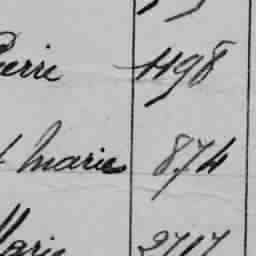 Pierre 1198
t Marie 874
Marie 2717